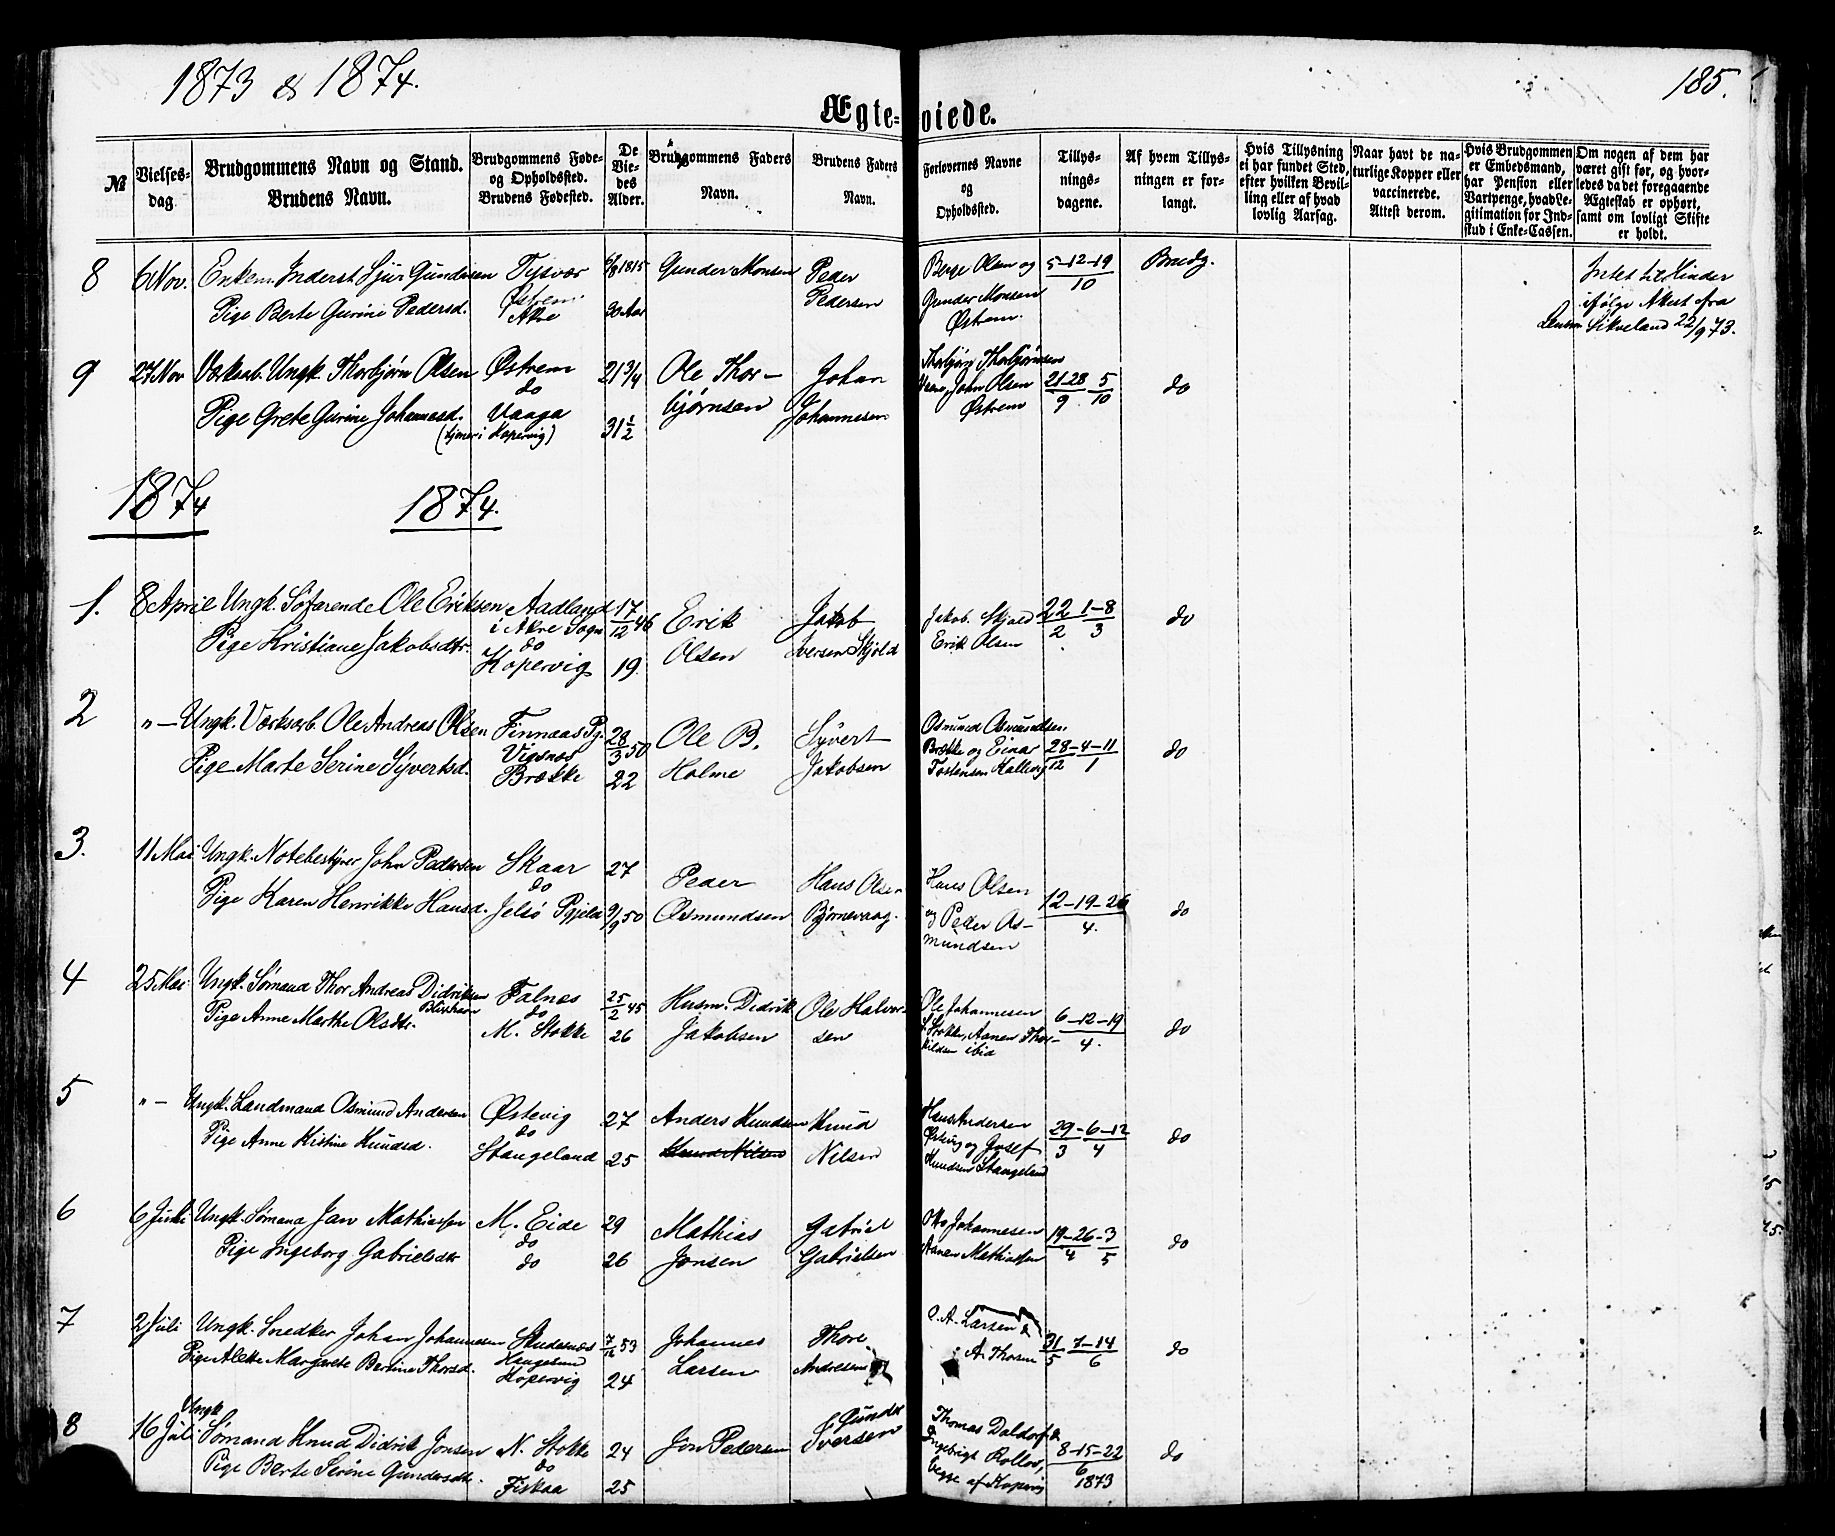 1873 & 1874.
185.
Ægte-viede.
№
Vielses-dag.
Brudgommens Navn og Stand.
Brudens Navn.
Brudgommens Føde-
og Opholdssted.
Brudens Fødested.
De Vie-des Alder.
Brudgommens Faders Navn.
Brudens Faders Navn.
Forlovernes Navne og Opholdssted.
Tillys-nings-dagene.
Af hvem Tillys-ningen er for-langt.
Hvis Tillysning ei har fundet Sted, efter hvilken Bevil-ling eller af hvad lovlig Aarsag.
Naar havt de na-turlige Kopper eller vaccinerede. Attest derom.
Hvis Brudgommen er Embedsmand, har Pension eller Vartpenge, hvad Le-gitimation for Ind-skud i Enke-Cassen.
Om nogen af dem har været gift før, og hvor-ledes da det foregaaende Ægteskab er ophørt, samt om lovligt Skifte er holdt.
8 6 Nov. Enkem. Inderst Sjur Gundersen Tysvær 6/8 1815 Gunder Monsen Peder Berge Olsen og 5-12-19 Brudg. Intet til Hinder
Østrem 10 ifølge Attest fra
Pige Berte Gurine Pedersd. Akre 30 Aar Pedersen Gunder Monsen Lensm. Sikveland 22/9 73.
Østrem.
9 27 Nov Værksarb. Ungk. Thorbjørn Olsen Østrem 21 3/4 Ole Thor- Johan Thorbjørn Thorbjørnsen
do John Olsen 21-28 5 do
Pige Grete Gurine Johannesd. Vaaga 31 1/2 bjørnsen Johannesen Østrem 9 10
(tjener i Kopervig)
1874 1874.
1. 8 April Ungk. Søfarende Ole Eriksen Aadland 17/12 46 Erik Jakob Jakob Skjold 22 1-8 do
i Akre Sogn 2 3
do
Pige Kristiane Jakobsdtr. Kopervig 19. Olsen Iversen Skjold Erik Olsen
2 "- Ungk. Værksarb. Ole Andreas Olsen Finnaas Pg. 28/3 50 Ole B. Syvert Osmund Osmundsen
Vigsnæs Brække og Einar 28-4-11 do
Pige Marte Serine Syvertsd. Brække 22 Holme Jakobsen Tostensen Kallevig 12 1
3. 11 Mai Ungk. Notebestyrer John Pedersen Skaar 27 Peder Hans Olsen Hans Olsen 12-19-26 do
do
Pige Karen Henrikke Hansd. Jelsø Pgjeld 9/9 50 Osmundsen Bjørnevaag. og Peder Os- 4.
mundsen
4 25 Mai Ungk. Sømand Thor Andreas Didriksen Falnæs 25/2 45 Husm. Didrik Ole Halvor- Ole Johannesen 6-12-19 do
do
Pige Anne Marthe Olsdtr. M. Stokke 26 Jakobsen sen Stokke, Aanen Thor- 4.
kildsen ibid
5 "- Ungk. Landmand Osmund Andersen Østevig 27 Anders Knudsen Knud Hans Andersen
do Østevig og Josef 29-6-12 do
Pige Anne Kistine Knudsd. Stangeland 25 Knud Nilsen Nilsen Knudsen Stangeland 3 4
6 6 Juni Ungk. Sømand Jan Mathiassen M. Eide 29 Mathias Gabriel Otto Johannesen 19-26-3 do
do
Pige Ingeborg Gabrielsdtr do 26 Jonsen Gabrielsen Aanen Mathiassen 4 5
7 2 Juli Ungk. Snedker Johan Johannesen Skudesnæs 7/12 53 Johannes Thore O. A. Larsen & 31 7-14 do
Haugesund
Pige Alette Margrete Bertine Thorsd. Kopervig 24 Larsen Andresen A. Thorsen 5 6
8 16 Juli Ungk. Sømand Knud Didrik Jonsen N. Stokke 24 Jon Pedersen Gunder Thomas Daldorf & 8-15-22 do
do
Pige Berte Serine Gundersdtr. Fiskaa 25 Iversen Ingebrigt 6
begge af Kopervig 1873